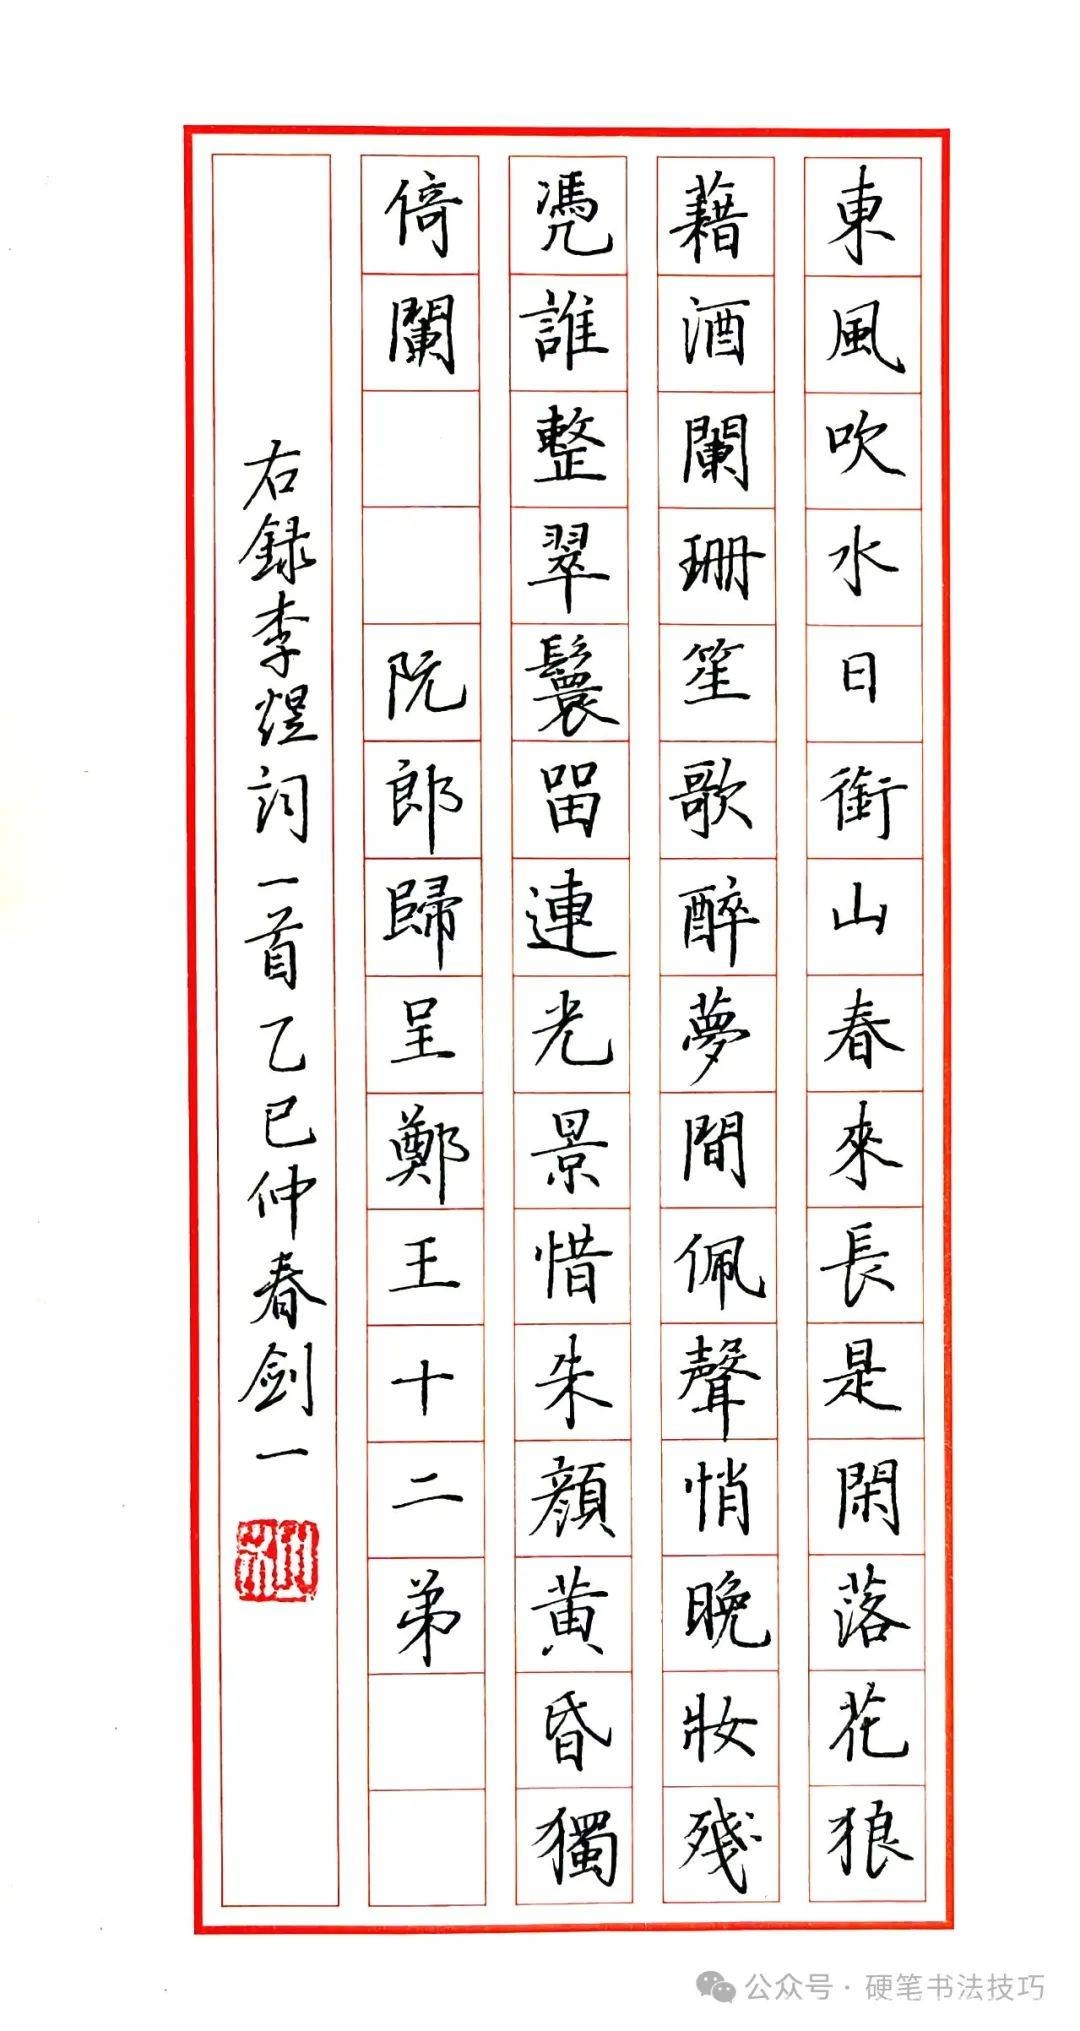 東風吹水日銜山春來長是閑落花狼
藉酒闌珊笙歌醉夢間佩聲悄晚妝殘
凴誰整翠鬟留連光景惜朱顔黄昏獨
倚闌 阮郎歸呈鄭王十二弟
右録李煜詞一首乙巳仲春剑一
公众号·硬笔书法技巧